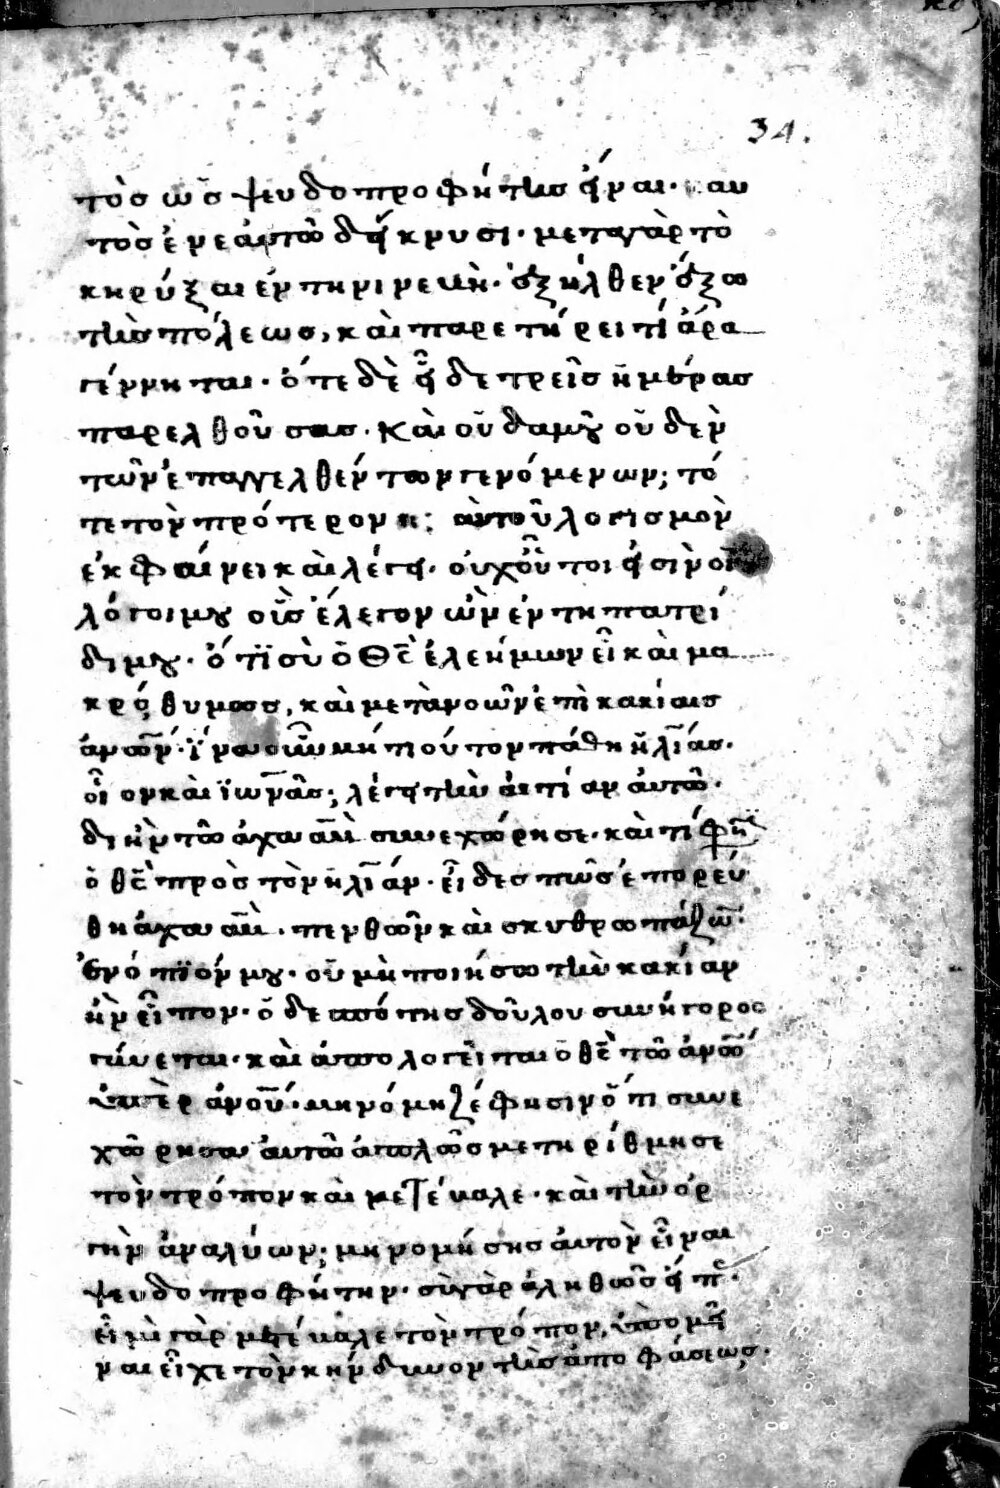 34.
τὸσ ὡσ ψευδοπροφήτησ εἶναι· αυ
τὸσ ἐνεαυτῶ δείκνυσι· μεταγὰρ τὸ
κηρύξαι ἐν τη νινευῆ· ἐξῆλθεν ἔξω
τῆσ πόλεωσ, καὶ παρετήρει τί ἄρα
γέννηται· ὅτε δὲ εἶδε τρεῖσ ἡμέρασ
παρελθοῦσασ· Καὶ οὐδαμοῦ οὐδὲν
τῶν ἐπαγγελθέντων γενόμενων; τό
τε τὸν πρότερον αὐτοῦ λογισμὸν
ἐκφαίνει καὶ λέγει· οὐχ οὗτοι εἰσὶν οἱ
λόγοι μου οὓσ ἔλεγον ὢν ἐν τη πατρί
δι μου· ὅτϊ σὺ ὁ Θσ ἐλεήμων εἶ καὶ μα
κρόθυμοσ, καὶ μετανοῶν ἐπὶ κακίαισ
ἀνων· ἵνα οὖν μή τι οὐτον πάθη ἡλίασ·
οἷον καὶ ϊωνᾶσ; λέγει τὴν αἰτίαν αὐτῶ·
δι ἣν τῶ ἀχαὰμ συνεχώρησε· καὶ τί φη
ὁ θσ πρὸσ τὸν ἡλίαν· εἶδεσ πῶσ ἐπορεύ
θη ἀχαὰμ· πενθῶν καὶ σκυθρωπάζων
ἐνόπϊόν μου· οὐ μὴ ποιήσω τὴν κακίαν
ἣν εἶπον· ὁ δεσπότησ δούλου συνήγοροσ
γίνεται· καὶ ἀπολογεῖται ὁ θσ τῶ ἀνω
ὑπὲρ ἀνου· μη νόμηζέ φησιν ὅτι συνε
χώρησα αὐτῶ ἁπλῶσ μετηρίθμησε
τὸν τρόπον καὶ μετέβαλε· καὶ τὴν ὀρ
γὴν ἀναλύων; μη νομήσησ αὐτὸν εἶναι
ψευδοπροφήτην· σὺ γὰρ ἀληθῶσ εἶπασ·
εἰ μὴ γὰρ μετέβαλε τὸν τρόπον, ὑπομεῖ
ναι εἶχε τὸν κήνδυνον τῆσ ἀποφάσεωσ·